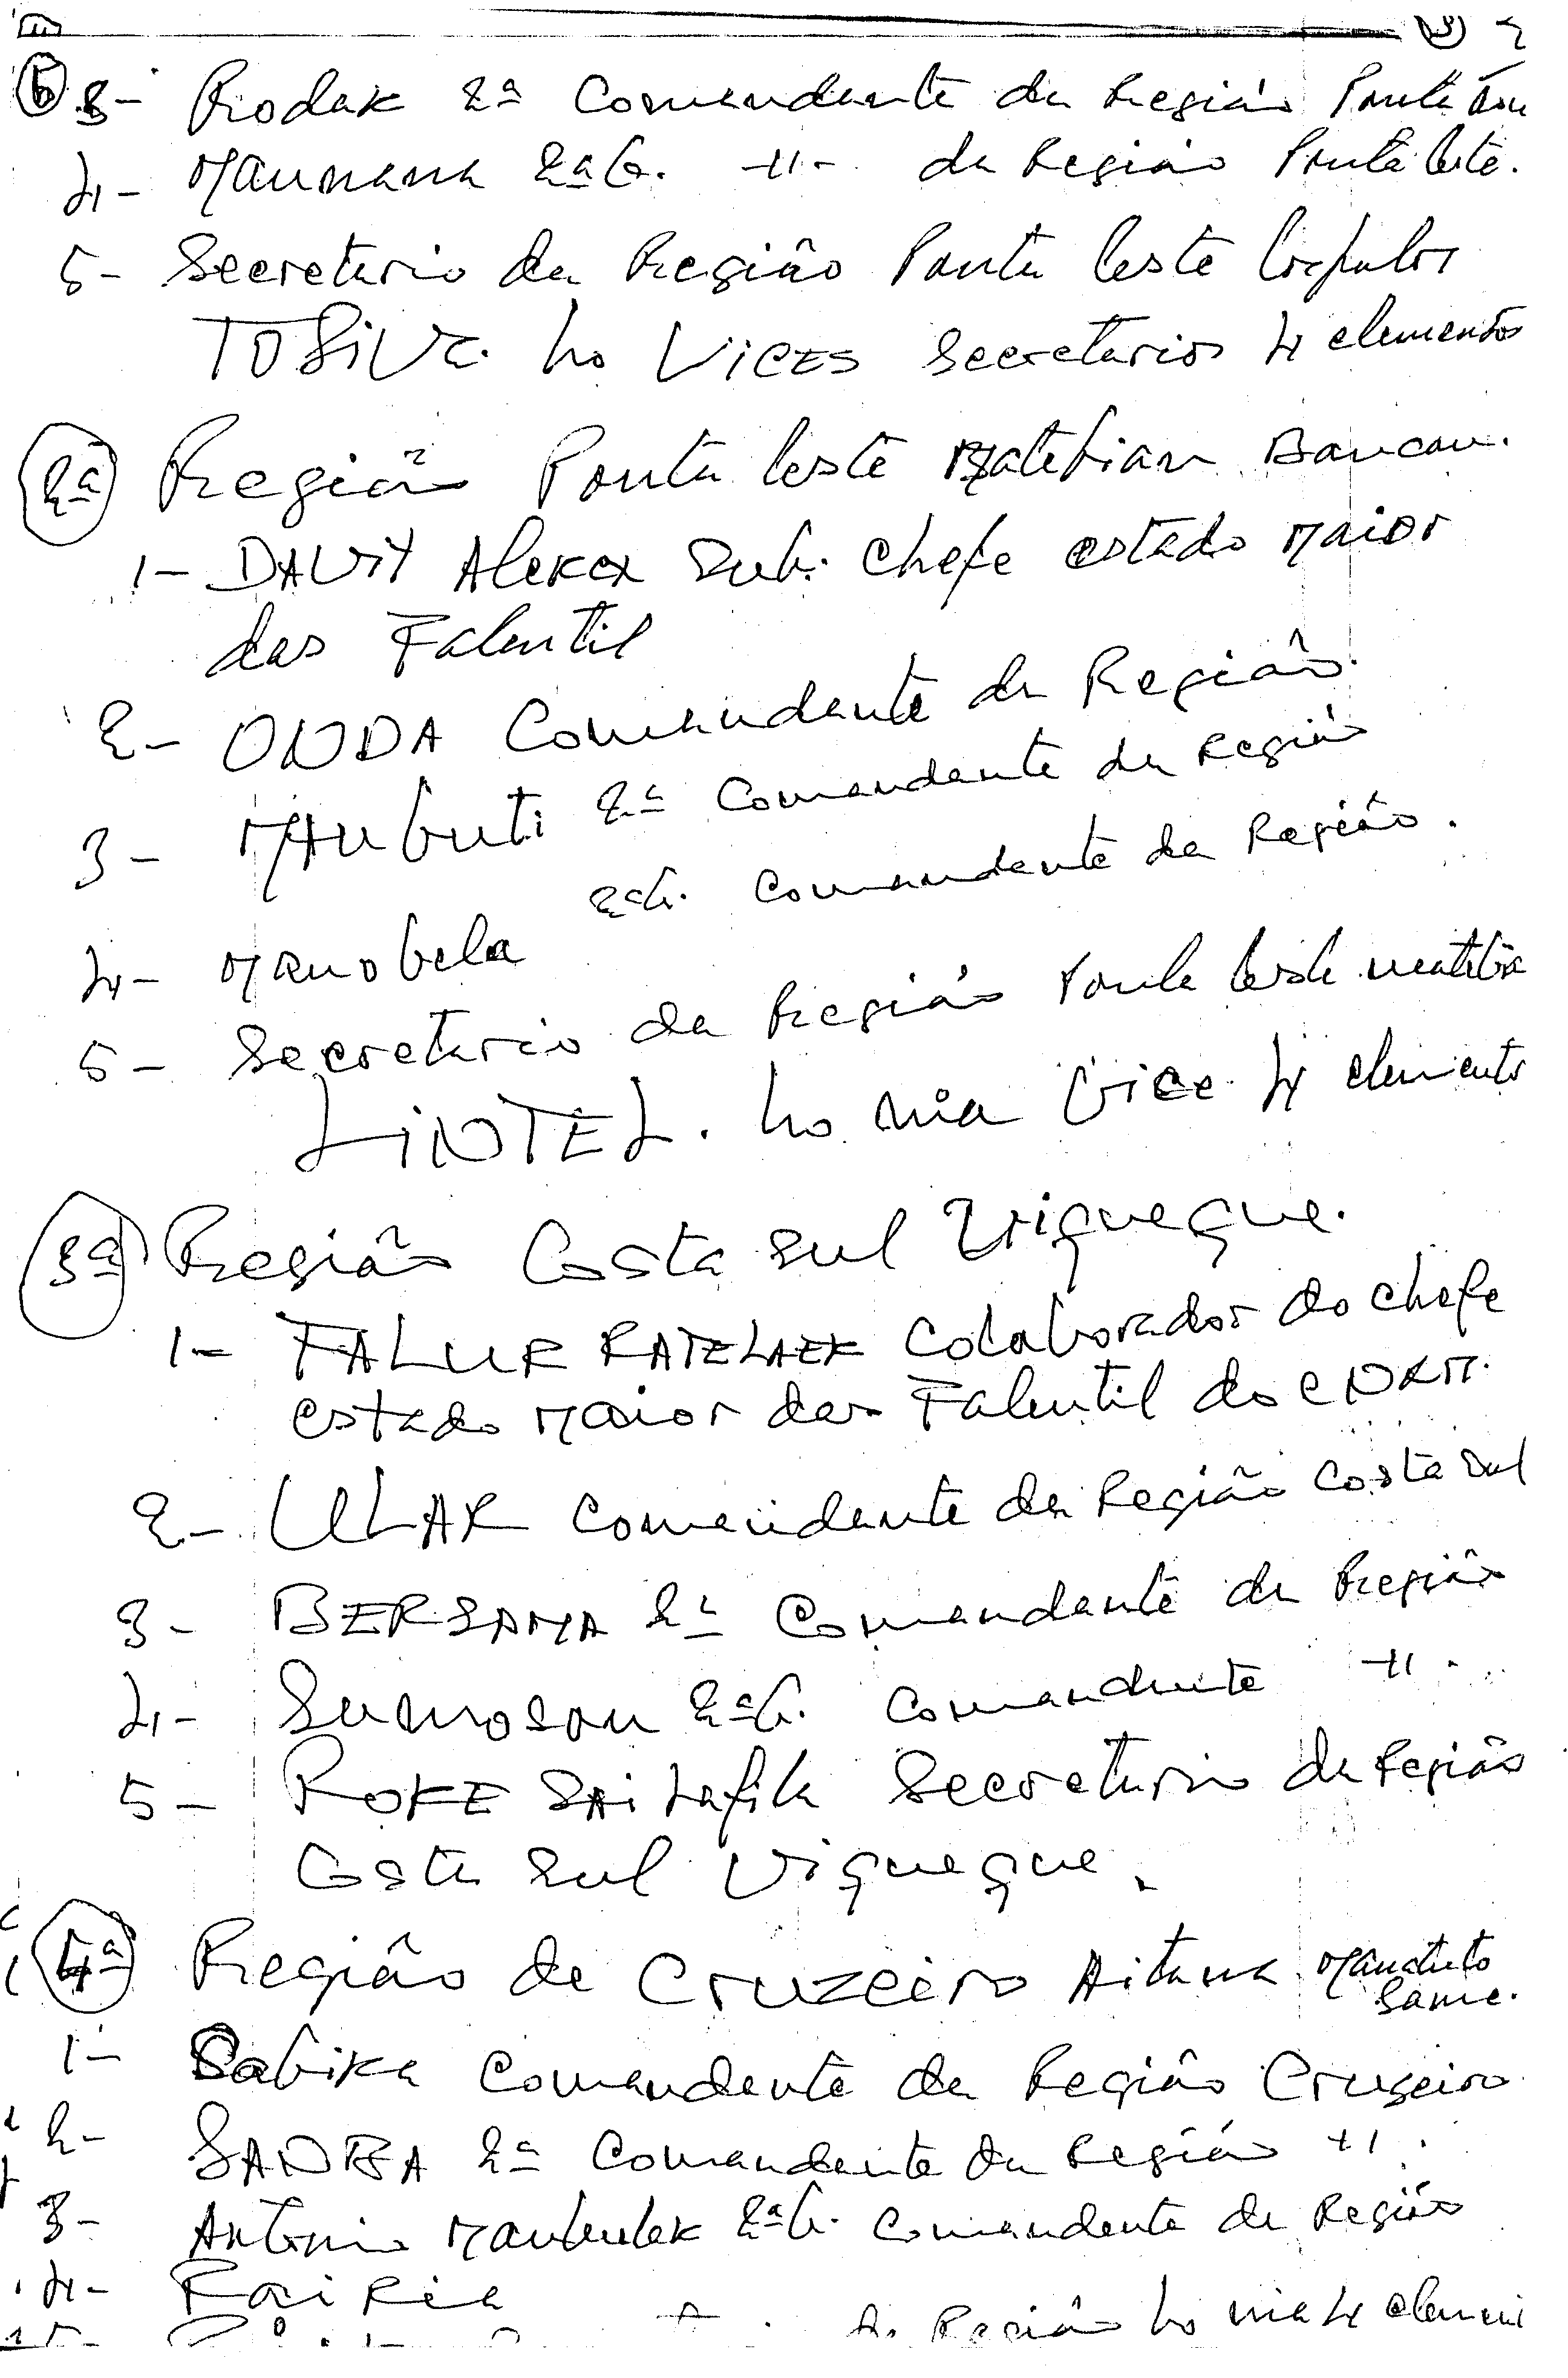 6 3- Rodak 2ª Comandante da Região Ponta
4- Maunana 2ª b. -11- da Região Ponta leste.
5- Secretario da Região Ponta leste
TOSIVA. ho VICES Secretarios 4 elementos
2ª Região Ponta leste Matebian Baucau.
1- DAVIT Alekex Sub. chefe estado Maior
das Falentil
2- ONDA Comandante da Região.
3- MAUbuti 2ª Comandante da Região
4- Manobela 2ª b. Comandante da Região.
5- Secretario da Região Ponta leste matebia
LINTEL. ho nia Vice 4 elemento
3ª Região Costa sul Viqueque.
1- FALUR RATELAEK Colaborador do chefe
estado Maior das Falentil do CNRM.
2- ULAR Comandante da Região Costa sul
3- BERSAMA 2ª Comandante da Região
4- Sumosan 2ª b. Comandante -11-
5- ROKE SAi Lafik Secretario da Região
Costa Sul Viqueque.
4ª Região de Cruzeiro Aitana Manatuto
Same.
1- Sabika Comandante da Região Cruzeiro
2- SANBA 2ª Comandante da Região -11.
3- Antonio Maubulek 2ª b. Comandante da Região
4- Rai Ria
Região ho nia 4